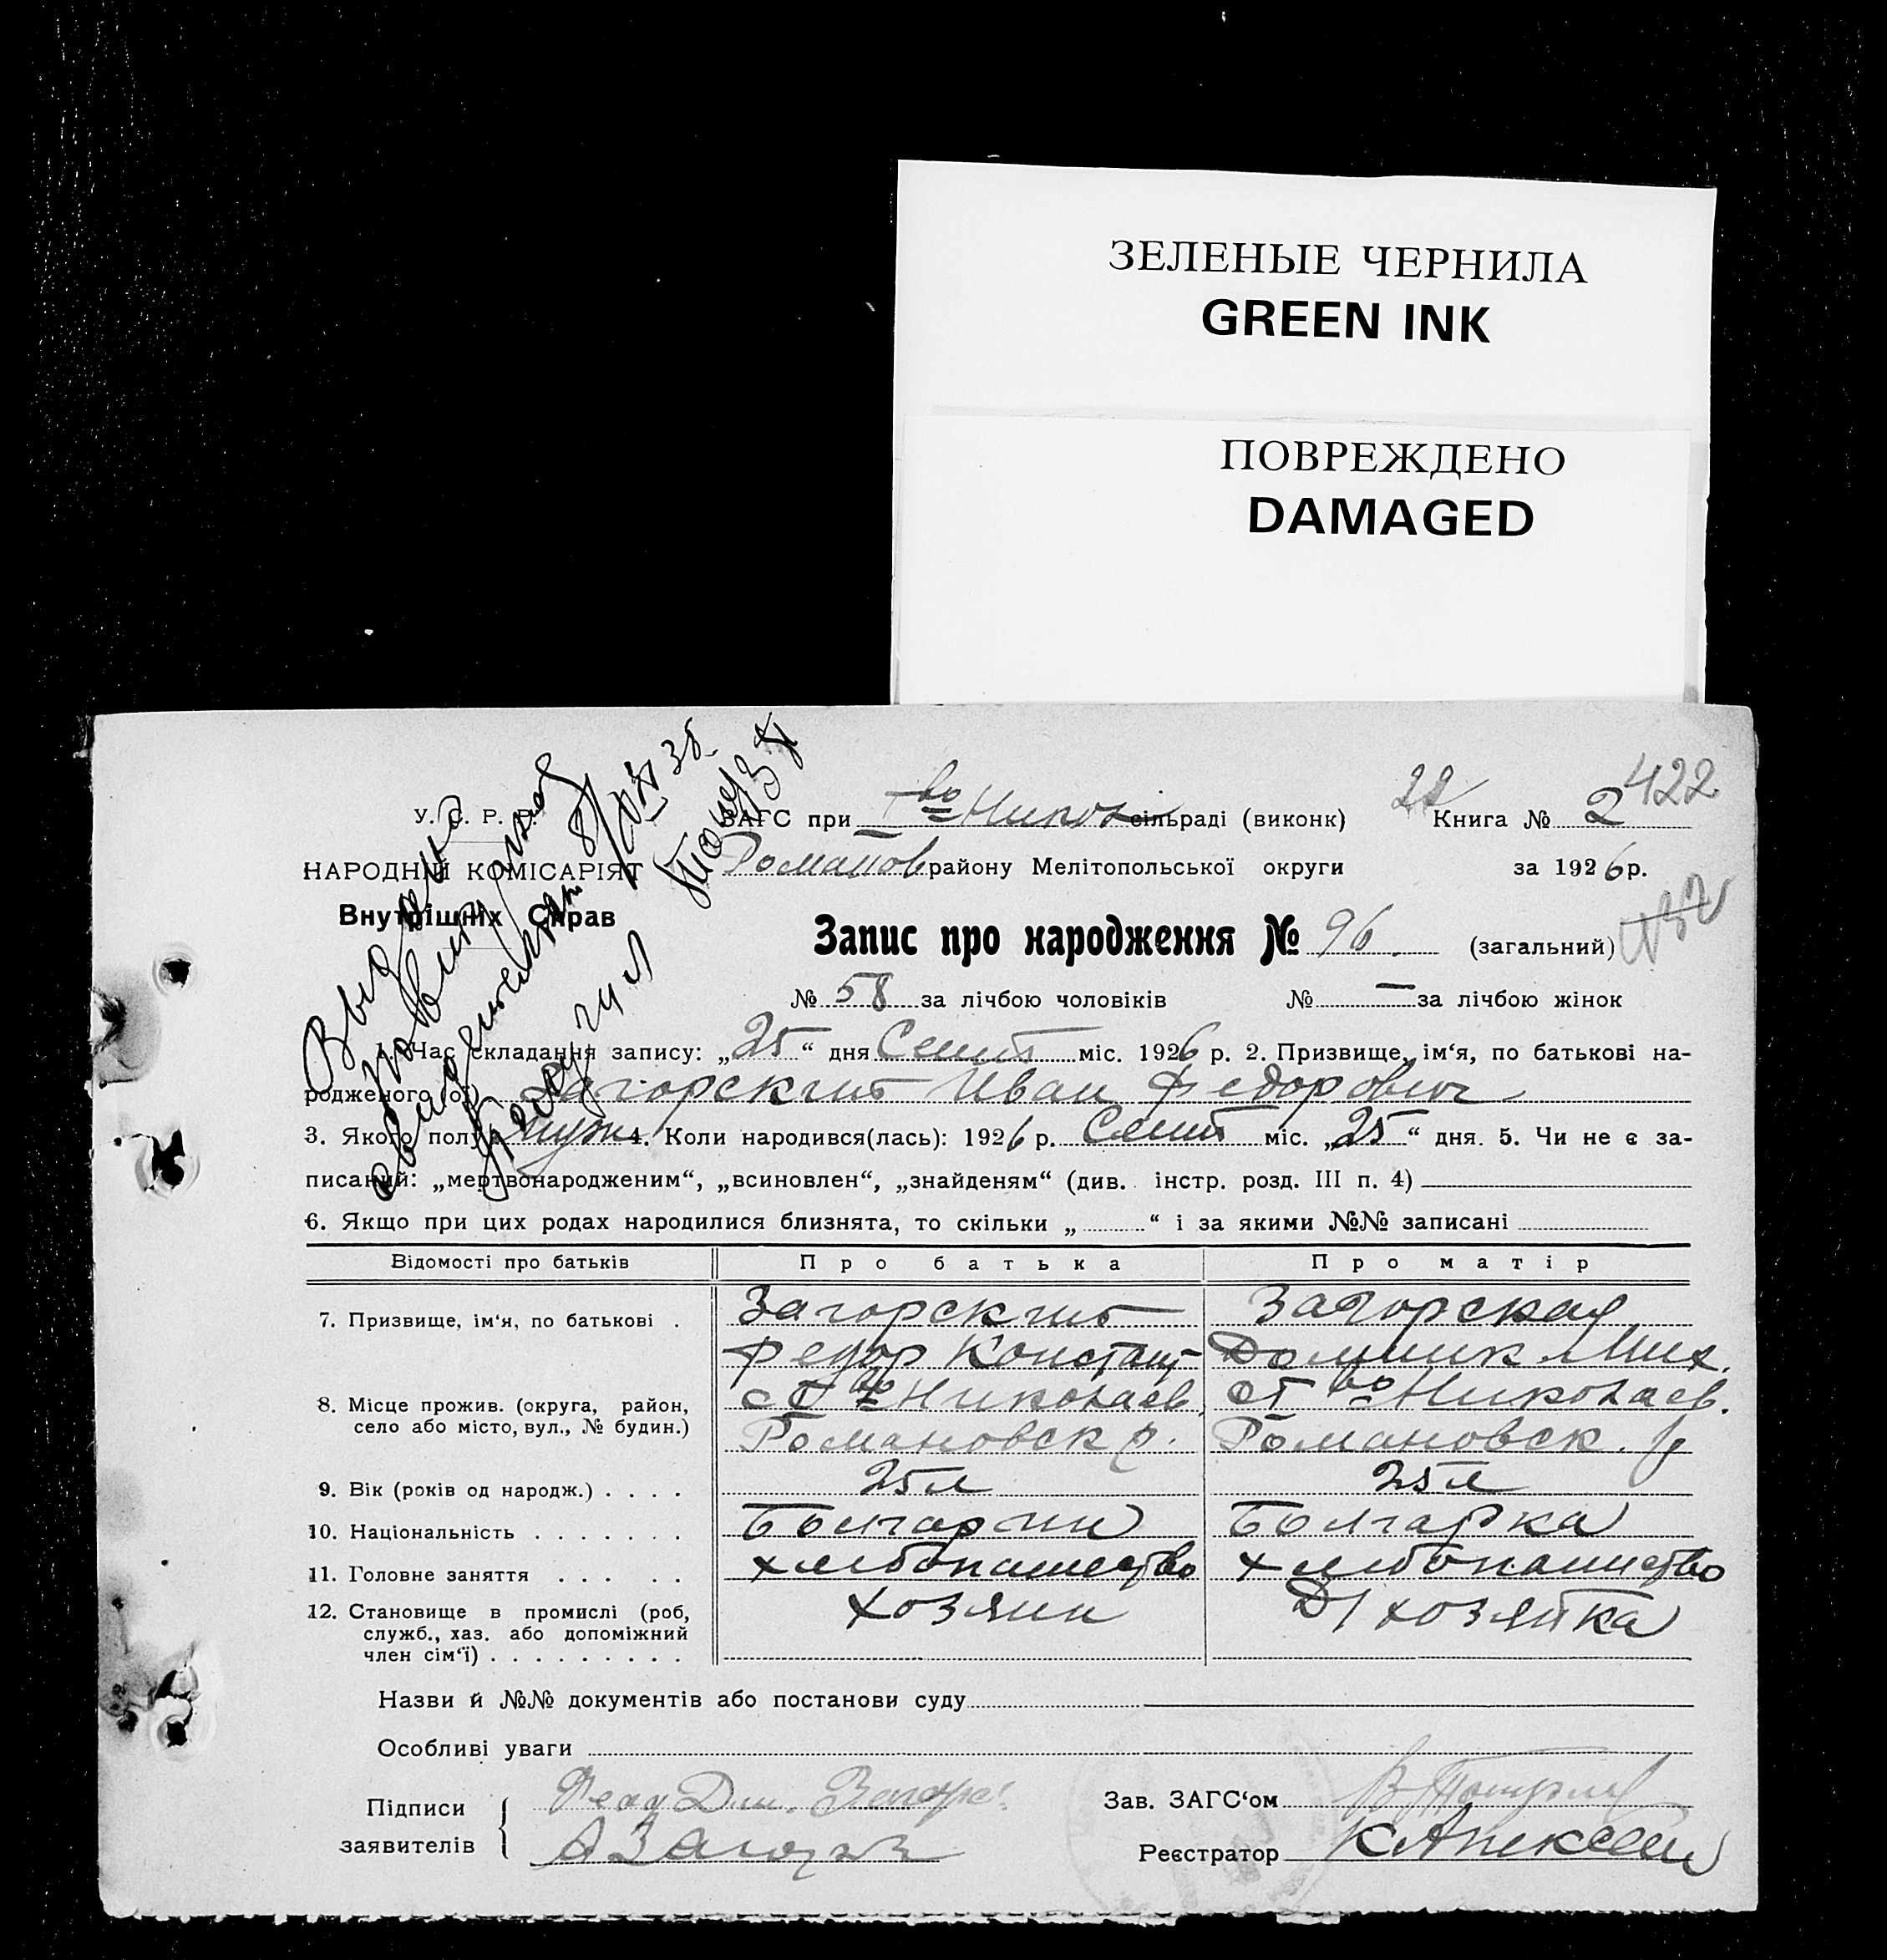 ЗЕЛЕНЫЕ ЧЕРНИЛА
GREEN INK
ПОВРЕЖДЕНО
DAMAGED
422
22
У. С. Р. Р.
ЗАГС при Т-во Никол сільраді (виконк) Книга № 2
НАРОДНІЙ КОМІСАРІЯТ Романов району Мелітопольської округи за 1926 р.
Внутрішніх Справ
Запис про народження № 96. (загальний)
№ 58 за лічбою чоловіків № — за лічбою жінок
свидетельст
Получил
1. Час складання запису: „25“ дня Сент міс. 1926 р. 2. Призвище, ім‘я, по батькові на-
родженого (ої) Загорский Иван Федорович
3. Якого полу муж 4. Коли народився(лась): 1926 р. Сент міс. „25“ дня. 5. Чи не є за-
писаний: „мертвонародженим“, „всиновлен“, „знайденям“ (див. інстр. розд. III п. 4)
6. Якщо при цих родах народилися близнята, то скільки „ “ і за якими №№ записані
Відомості про батьків Про батька Про матір
7. Призвище, ім‘я, по батькові . Загорский Загорская
Федор Констант Домник Мих.
8. Місце прожив. (округа, район, с Т-во Николаев. с Т-во Николаев.
село або місто, вул., № будин.) Романовск р. Романовск. р
9. Вік (років од народж.) . . . . 25 л 25 л
10. Національність . . . . . . . Болгарин Болгарка
11. Головне заняття . . . . . хлебопашество хлебопашество
12. Становище в промислі (роб, хозяин Д/хозяйка
служб., хаз. або допоміжний
член сім‘ї) . . . . . . . . .
Назви й №№ документів або постанови суду
Особливі уваги
Підписи
заявителів
Зав. ЗАГС‘ом
Реєстратор К Алексеев